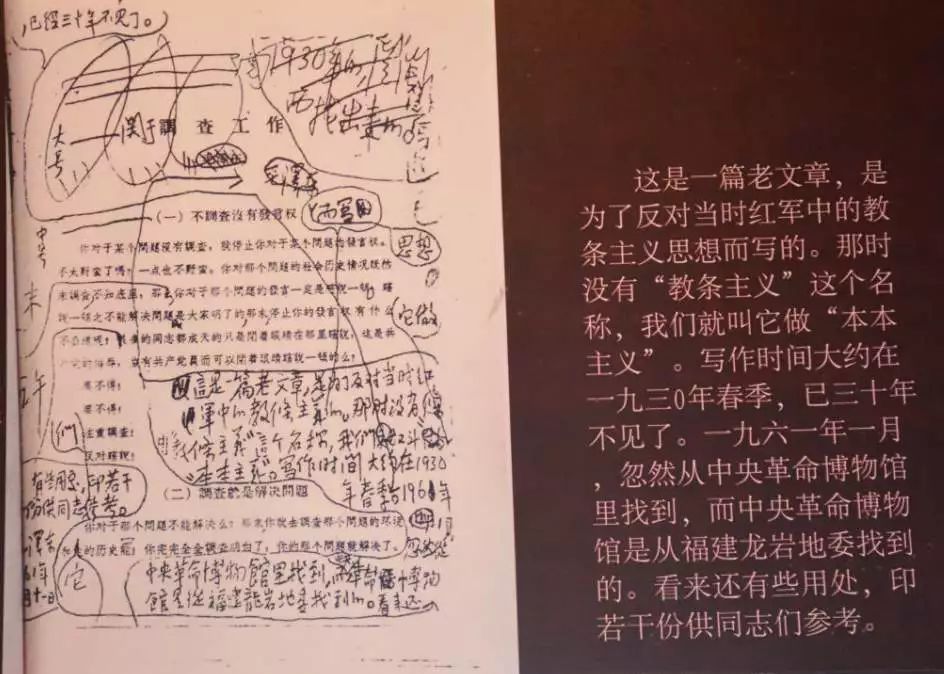 已经三十年不见了。）
大号
关于調查工作
（一）不調查沒有發言权
你对于某个問題沒有調查，就停止你对于某个問題的發言权。
不太野蛮了嗎？一点也不野蛮。你对那个問題的社会历史情况既然
末調查不知底里，那么你对于那个問題的發言一定是瞎說一頓。瞎
說一頓之不能解决問題是大家明了的那末停止你的發言权有什么
不公道呢？
的同志都成天的只是閉着眼睛在那里瞎說，这是共
产党的侮辱，豈有共产党員而可以閉着眼睛瞎說一頓的么！
要不得！
要不得！
注重調查！
反对瞎說！
思想
它做
這是一篇老文章，是为了反对当时红
軍中的教條主义
那时没有
教條主義"這个名称，我们
"本本主義"。寫作时间大約在1930
年春季
1961年
（二）調查就是解决問題
你对于那个問題不能解决么？那末你就去調查那个問題的现状
和它的历史罷！你完完全全調查明白了，你对那个問題就能解决了。
有些用处，印若干
份供同志们参考。
中央革命博物館里找到，而
革命博物
館是從福建龍岩地委找到的。看来还
它
这是一篇老文章，是
为了反对当时红军中的教
条主义思想而写的。那时
没有“教条主义”这个名
称，我们就叫它做“本本
主义”。写作时间大约在
一九三0年春季，已三十年
不见了。一九六一年一月
，忽然从中央革命博物馆
里找到，而中央革命博物
馆是从福建龙岩地委找到
的。看来还有些用处，印
若干份供同志们参考。